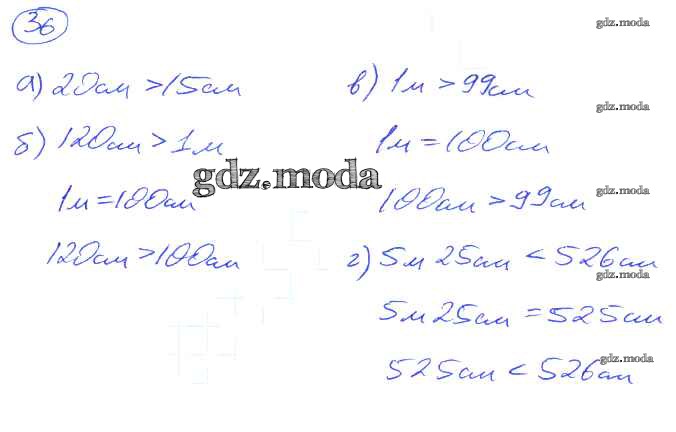 36
gdz.moda
а) 20см > 15см
б) 120см > 1м
1м = 100см
120см > 100см
gdz.moda
в) 1м > 99см
gdz.moda
1м = 100см
gdz.moda
100см > 99см
г) 5м 25см < 526см
gdz.moda
5м 25см = 525см
525см < 526см
gdz.moda